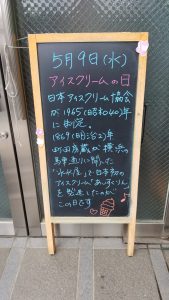 5月9日(水)
アイスクリームの日
日本アイスクリーム協会
が1965(昭和40)年
に制定。
1869(明治2)年
町田房蔵が横浜の
馬車道通りに開いた
「氷水屋」で日本初の
アイスクリーム「あいすくりん」
を製造したのが
この日です